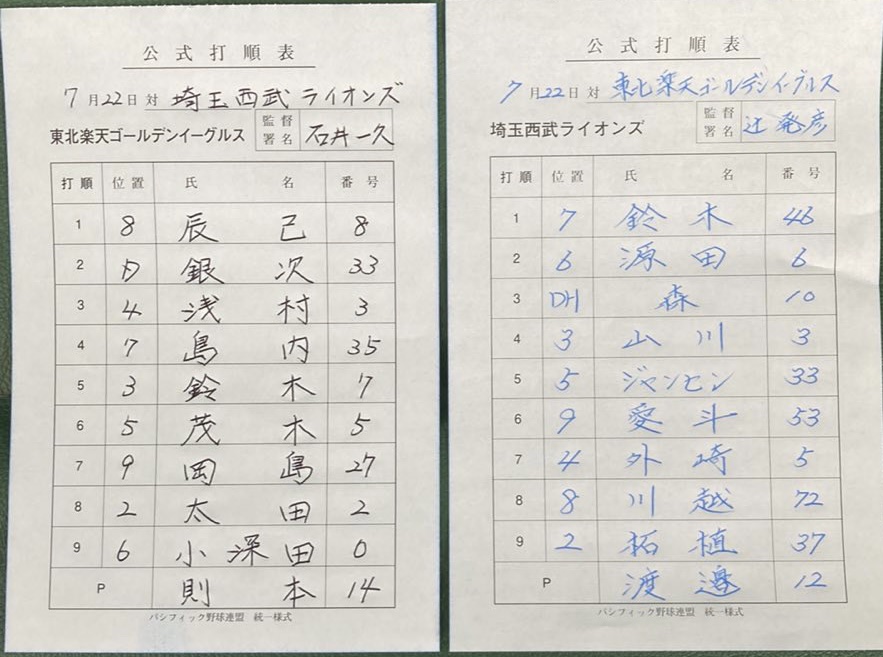 公式打順表
7月22日対 埼玉西武ライオンズ
東北楽天ゴールデンイーグルス 監督署名 石井一久
打順 位置 氏名 番号
1 8 辰己 8
2 D 銀次 33
3 4 浅村 3
4 7 島内 35
5 3 鈴木 7
6 5 茂木 5
7 9 岡島 27
8 2 太田 2
9 6 小深田 0
P 則本 14
パシフィック野球連盟 統一様式
公式打順表
7月22日対 東北楽天ゴールデンイーグルス
埼玉西武ライオンズ 監督署名 辻発彦
打順 位置 氏名 番号
1 7 鈴木 46
2 6 源田 6
3 DH 森 10
4 3 山川 3
5 5 ジャンセン 33
6 9 愛斗 53
7 4 外崎 5
8 8 川越 72
9 2 柘植 37
P 渡邉 12
パシフィック野球連盟 統一様式